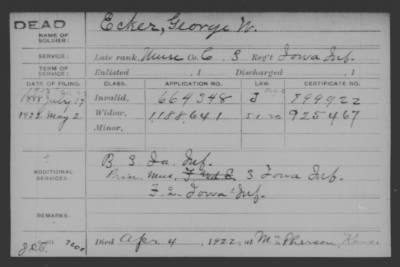 DEAD
NAME OF SOLDIER:
Ecker, George W.
SERVICE:
Late rank, Muse Co. C, 3 Reg't Iowa Inf.
TERM OF SERVICE:
Enlisted , 1 Discharged , 1
DATE OF FILING. CLASS. APPLICATION NO. LAW. CERTIFICATE NO.
1888 July 17 Invalid, 664348 J 899922
1922 May 2 Widow, 1188,641 5.1.20 925467
Minor,
ADDITIONAL SERVICES:
B 3 Ia. Inf.
Prin. Mus. 3 Iowa Inf.
F. 2. Iowa Inf.
REMARKS:
Died Apr 4, 1922, at McPherson, Kans